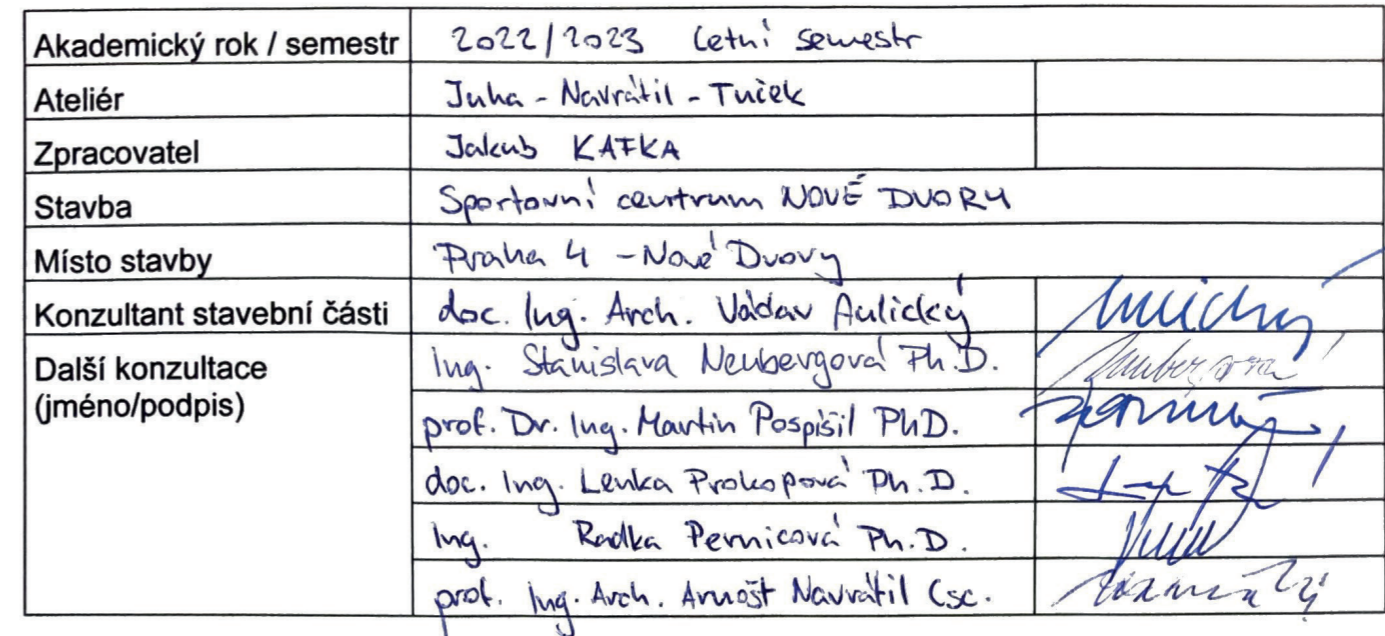 Akademický rok / semestr 2022/2023 letní semestr
Ateliér Juha - Navrátil - Tuček
Zpracovatel Jakub KAFKA
Stavba Sportovní centrum NOVÉ DVORY
Místo stavby Praha 4 - Nové Dvory
Konzultant stavební části doc. Ing. Arch. Václav Aulický
Další konzultace Ing. Stanislava Neubergová Ph.D.
(jméno/podpis) prof. Dr. Ing. Martin Pospíšil PhD.
doc. Ing. Lenka Prokopová Ph.D.
Ing. Radka Pernicová Ph.D.
prof. Ing. Arch. Arnošt Navrátil Csc.